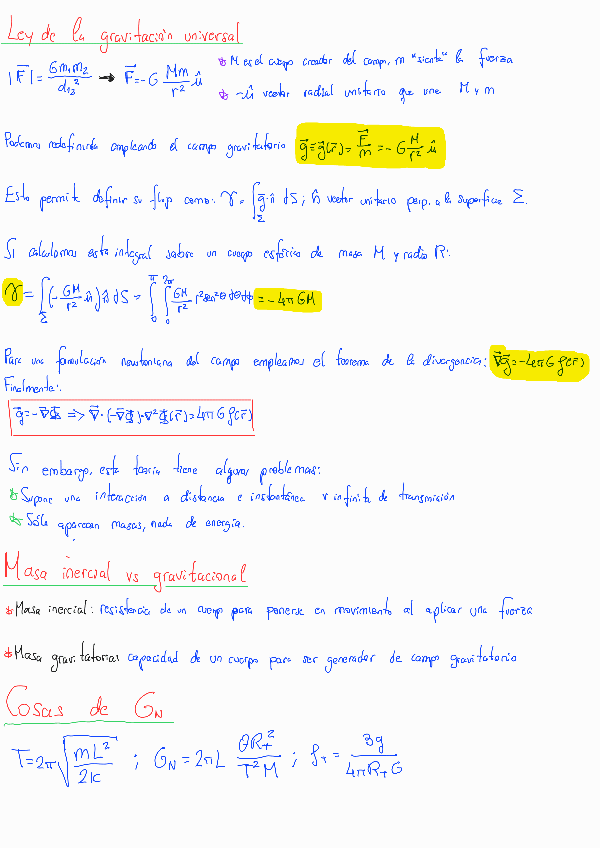 Ley de la gravitación universal
|F⃗| = Gm₁m₂/d₁₂² → F⃗ = -G Mm/r² û
* M es el cuerpo creador del campo, m "siente" la fuerza
* -û vector radial unitario que une M y m
Podemos redefinirla empleando el campo gravitatorio g⃗ = g⃗(r⃗) = F⃗/m = -G M/r² û
Esto permite definir su flujo como: γ = ∫_Σ g⃗·n̂ dS ; n̂ vector unitario perp. a la superficie Σ.
Si calculamos esta integral sobre un cuerpo esférico de masa M y radio R:
γ = ∫_Σ (-GM/r² û) n̂ dS = ∫₀^π ∫₀^2π GM/r² r² sen²θ dθdϕ = -4πGM
Para una formulación newtoniana del campo empleamos el teorema de la divergencia: ∇⃗g⃗ = -4πGρ(r⃗)
Finalmente:
g⃗ = -∇⃗Φ => ∇⃗·(-∇⃗Φ)·∇²Φ(r⃗) = 4πGρ(r⃗)
Sin embargo, esta teoría tiene algunos problemas:
* Supone una interacción a distancia e instantánea v infinita de transmisión
* Sólo aparecen masas, nada de energía.
Masa inercial vs gravitacional
* Masa inercial: resistencia de un cuerpo para ponerse en movimiento al aplicar una fuerza
* Masa gravitatoria: capacidad de un cuerpo para ser generador de campo gravitatorio
Cosas de G_N
T = 2π √(mL²/2K) ; G_N = 2πL θR_T²/T²M ; ρ_T = 3g/4πR_T G